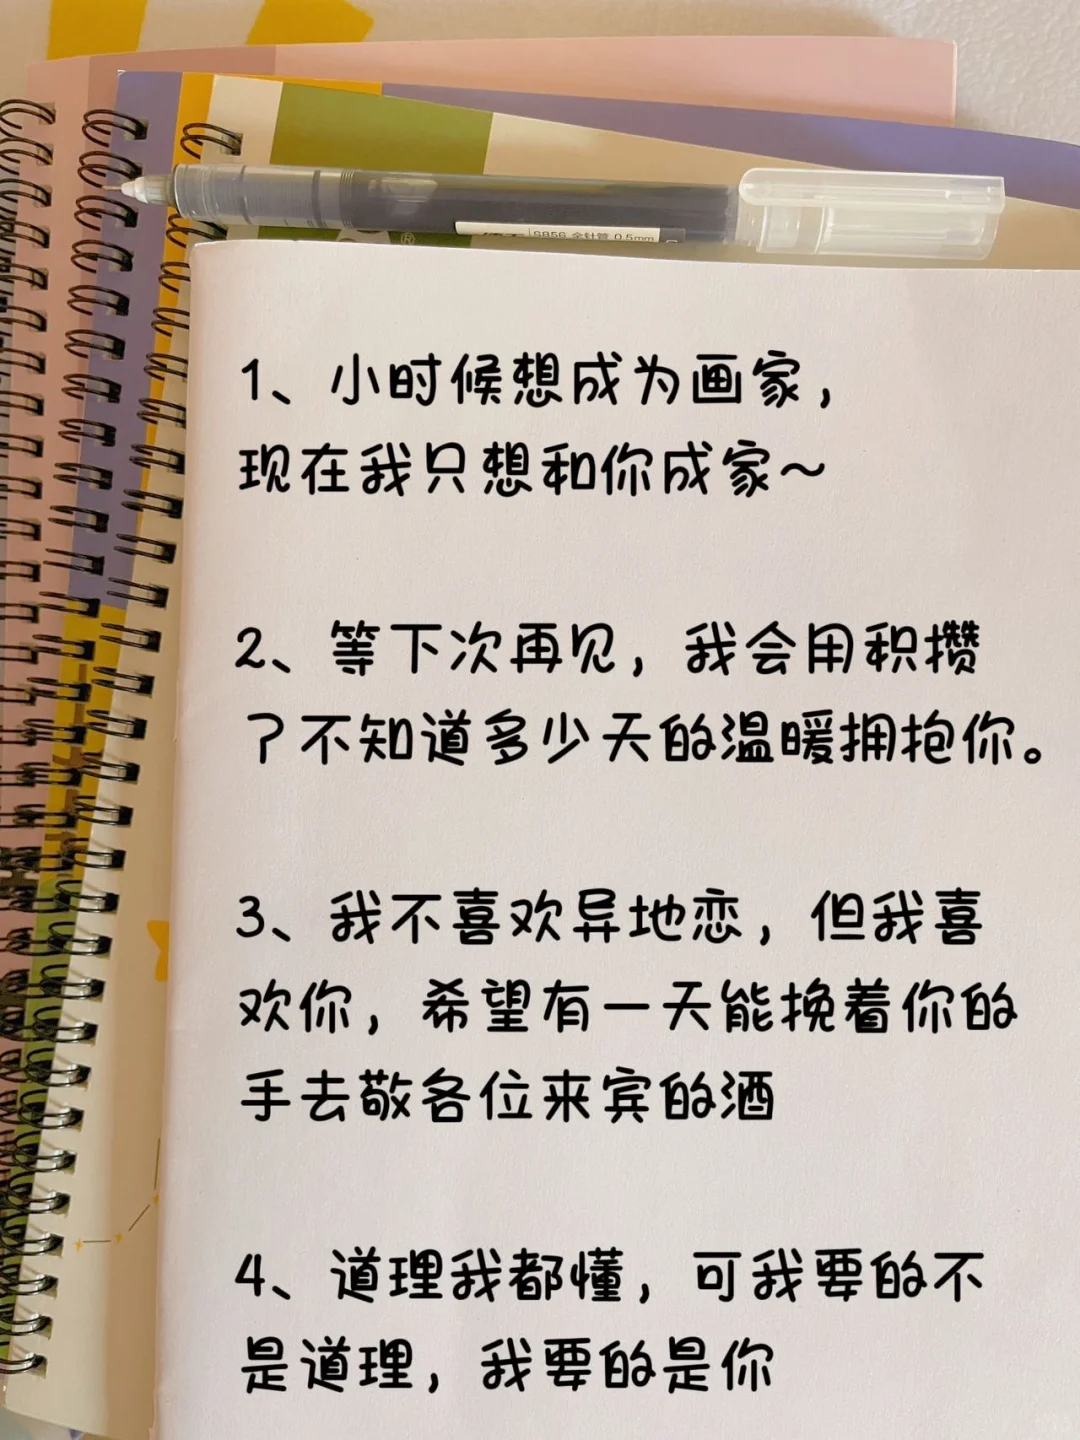 S856 全针管 0.5mm
®
1、小时候想成为画家，
现在我只想和你成家～
2、等下次再见，我会用积攒
了不知道多少天的温暖拥抱你。
3、我不喜欢异地恋，但我喜
欢你，希望有一天能挽着你的
手去敬各位来宾的酒
4、道理我都懂，可我要的不
是道理，我要的是你